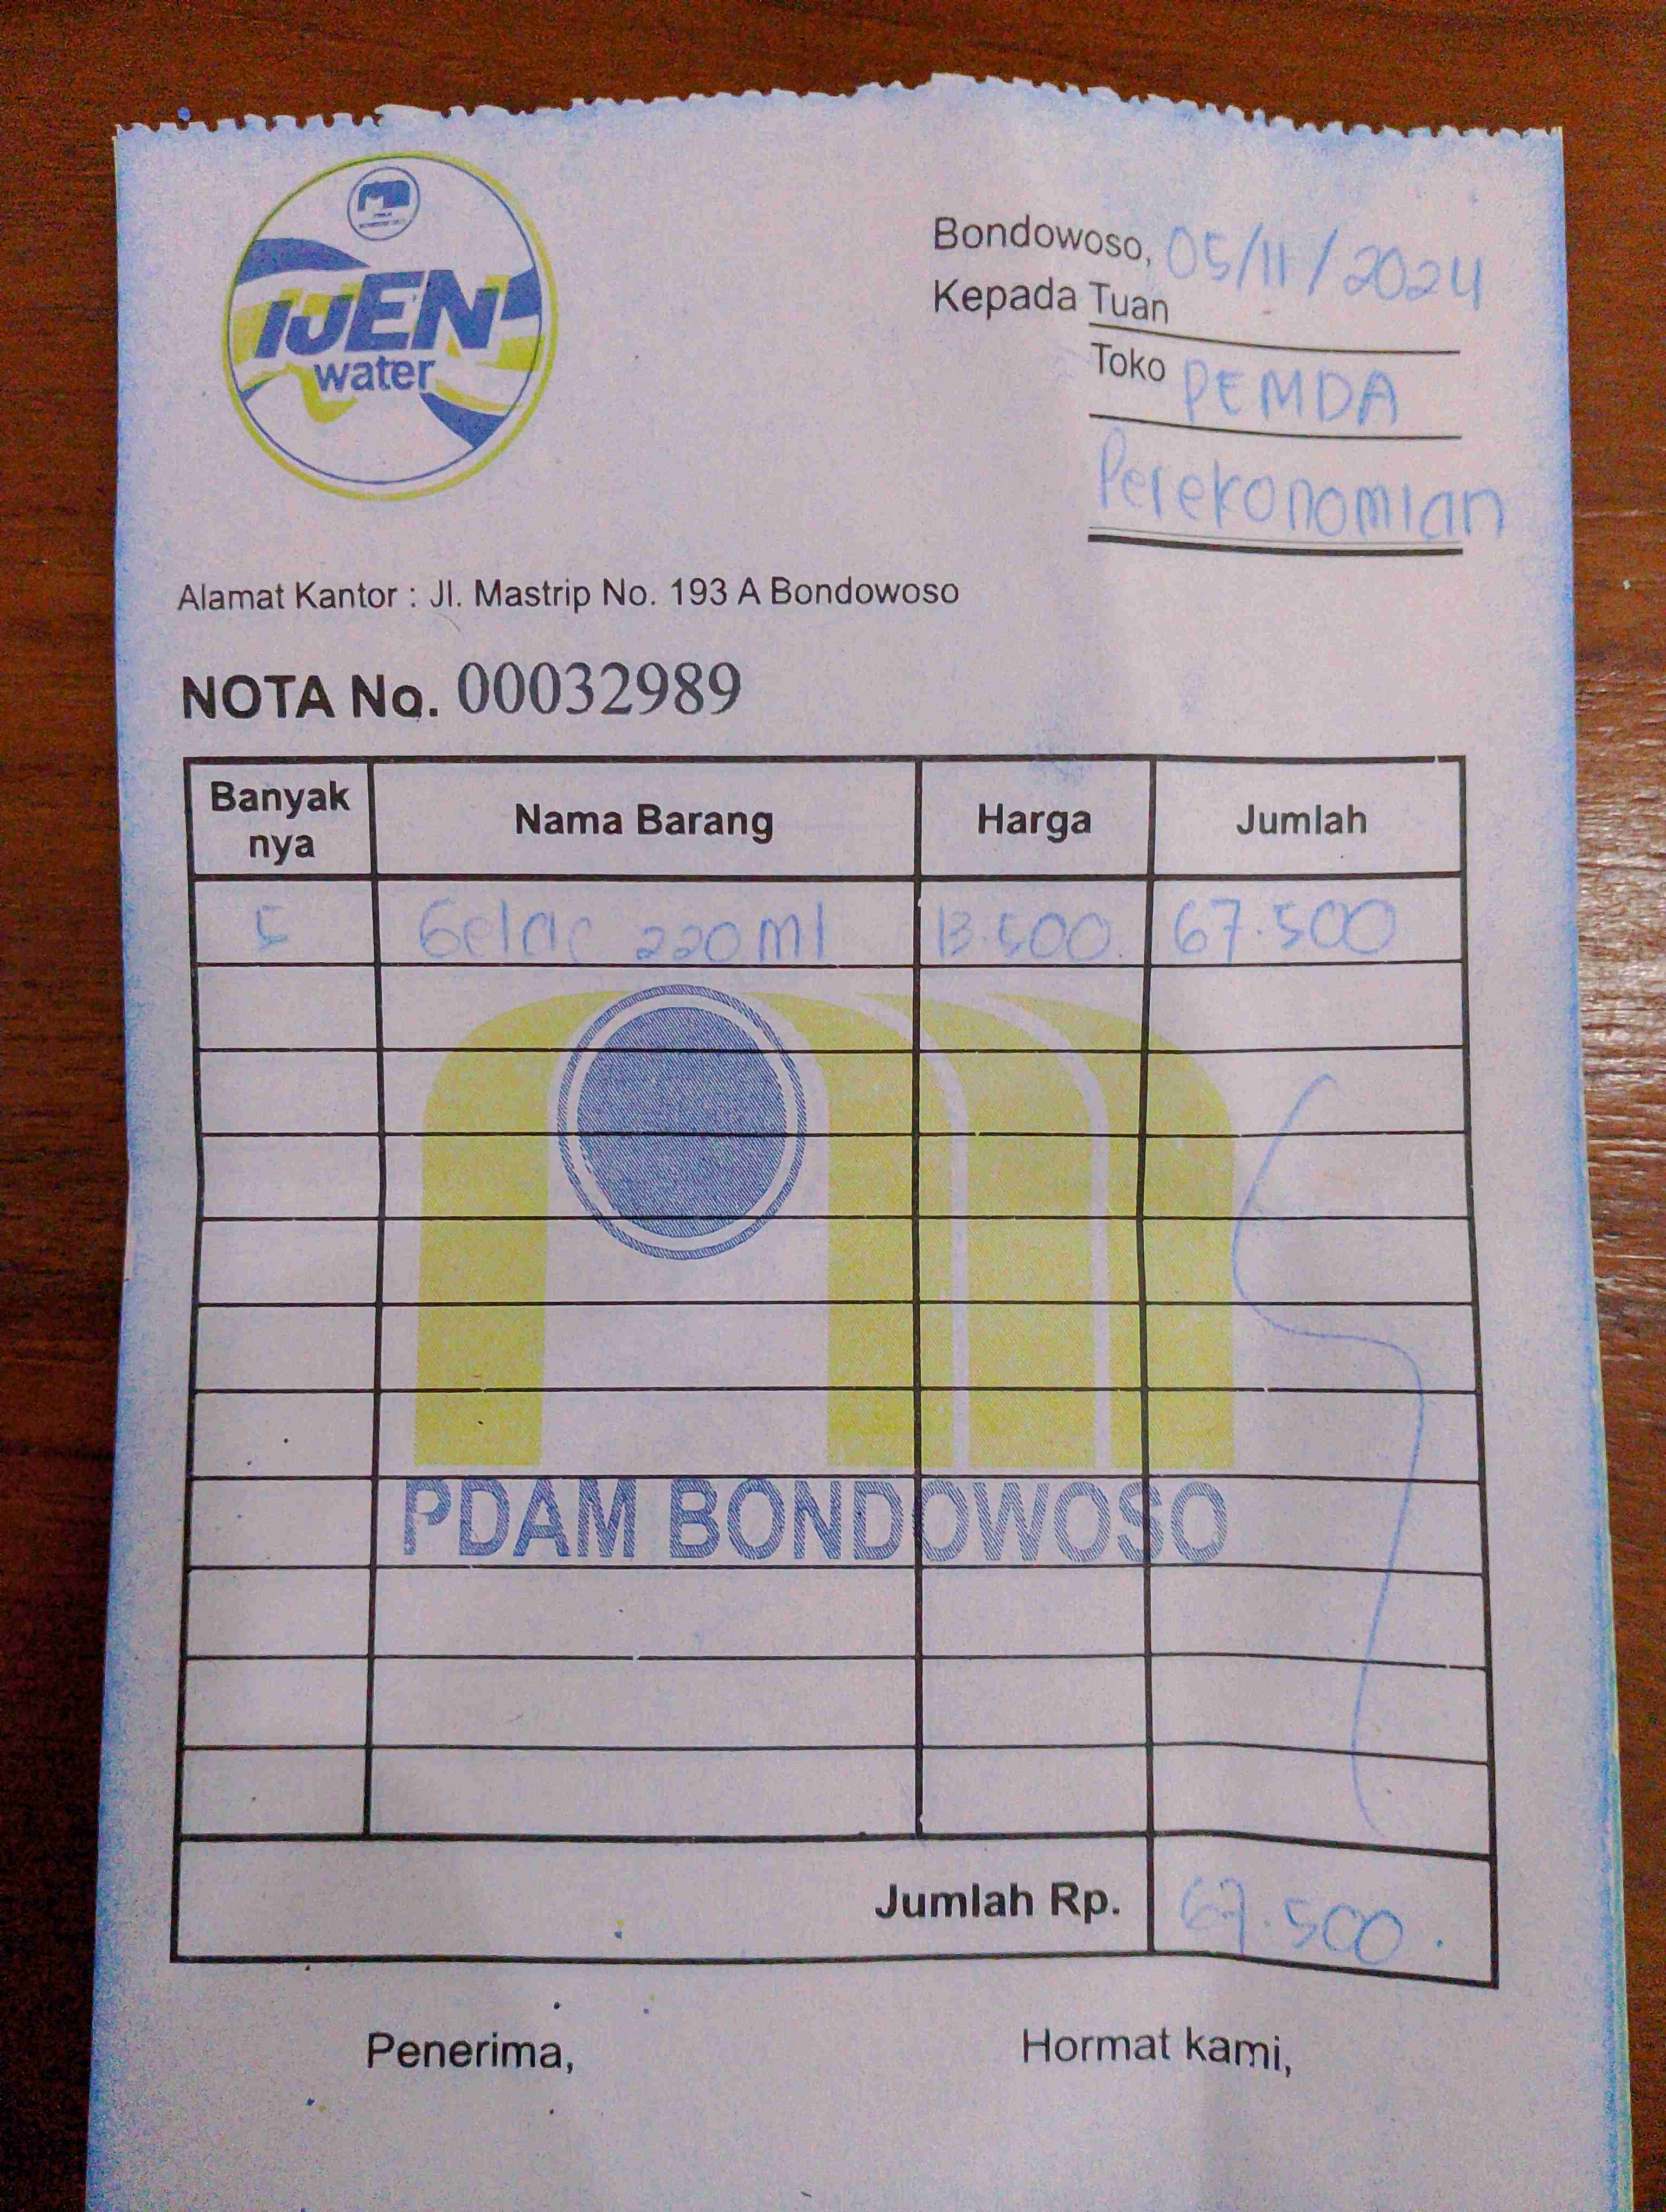 IJEN
water
Bondowoso, 05/11/2024
Kepada Tuan
Toko PEMDA
Perekonomian
Alamat Kantor : Jl. Mastrip No. 193 A Bondowoso
NOTA No. 00032989
Banyak nya Nama Barang Harga Jumlah
5 Gelas 220 ml 13.500 67.500
PDAM BONDOWOSO
Jumlah Rp. 67.500
Penerima, Hormat kami,